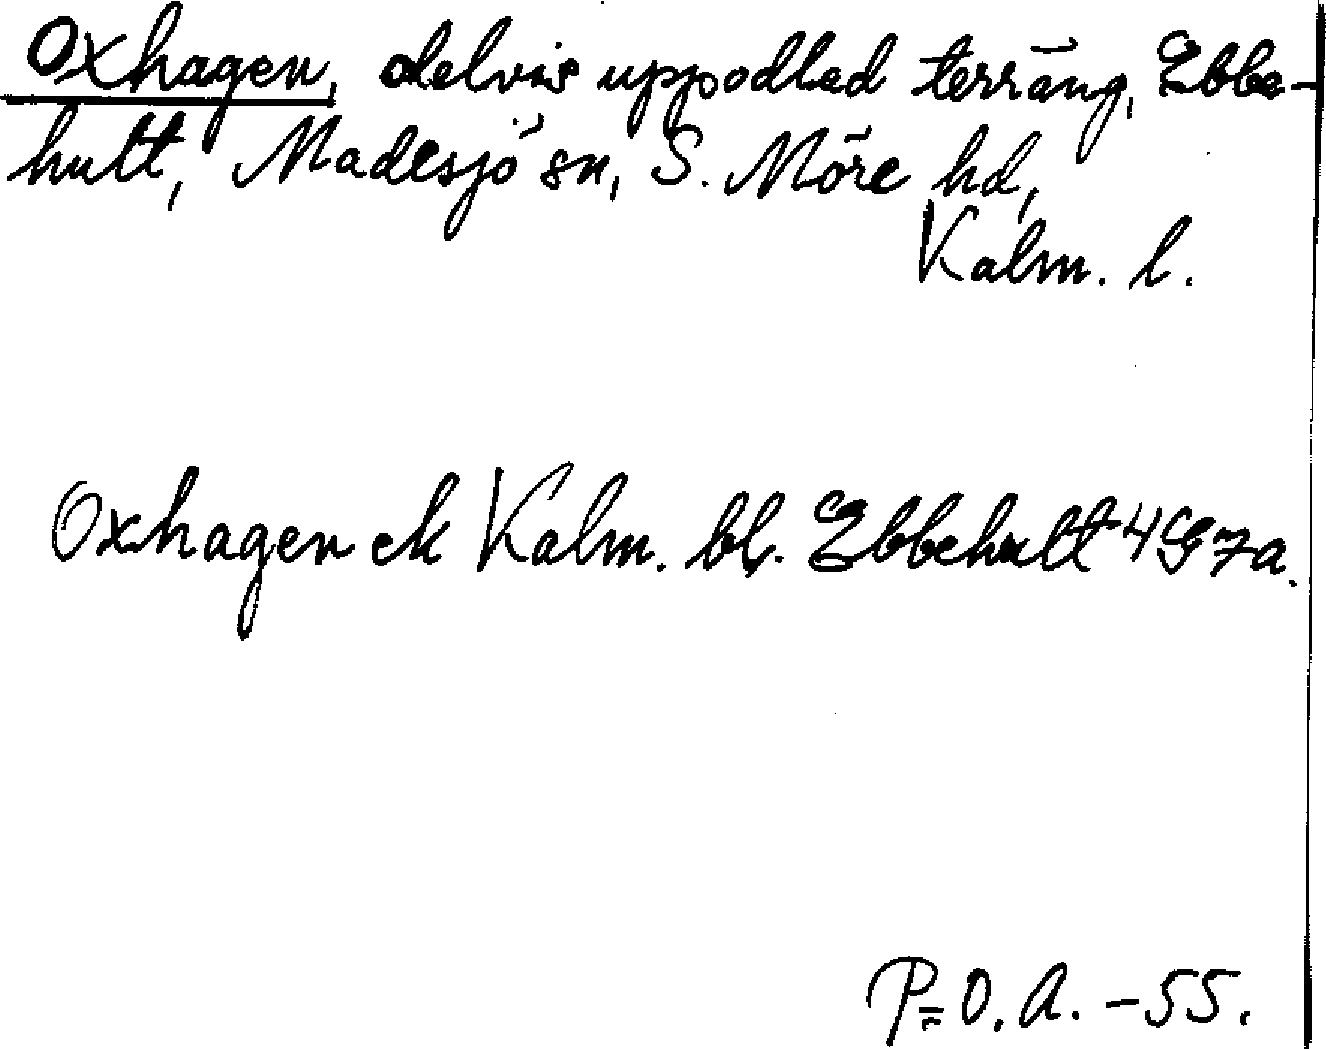 Oxhagen, delvis uppodlad terräng, Ebbe-
hult, Madesjö sn, S. Möre hd,
Kalm. l.
Oxhagen ek Kalm. bl. Ebbehult 4G7a.
P-O.A. -55.